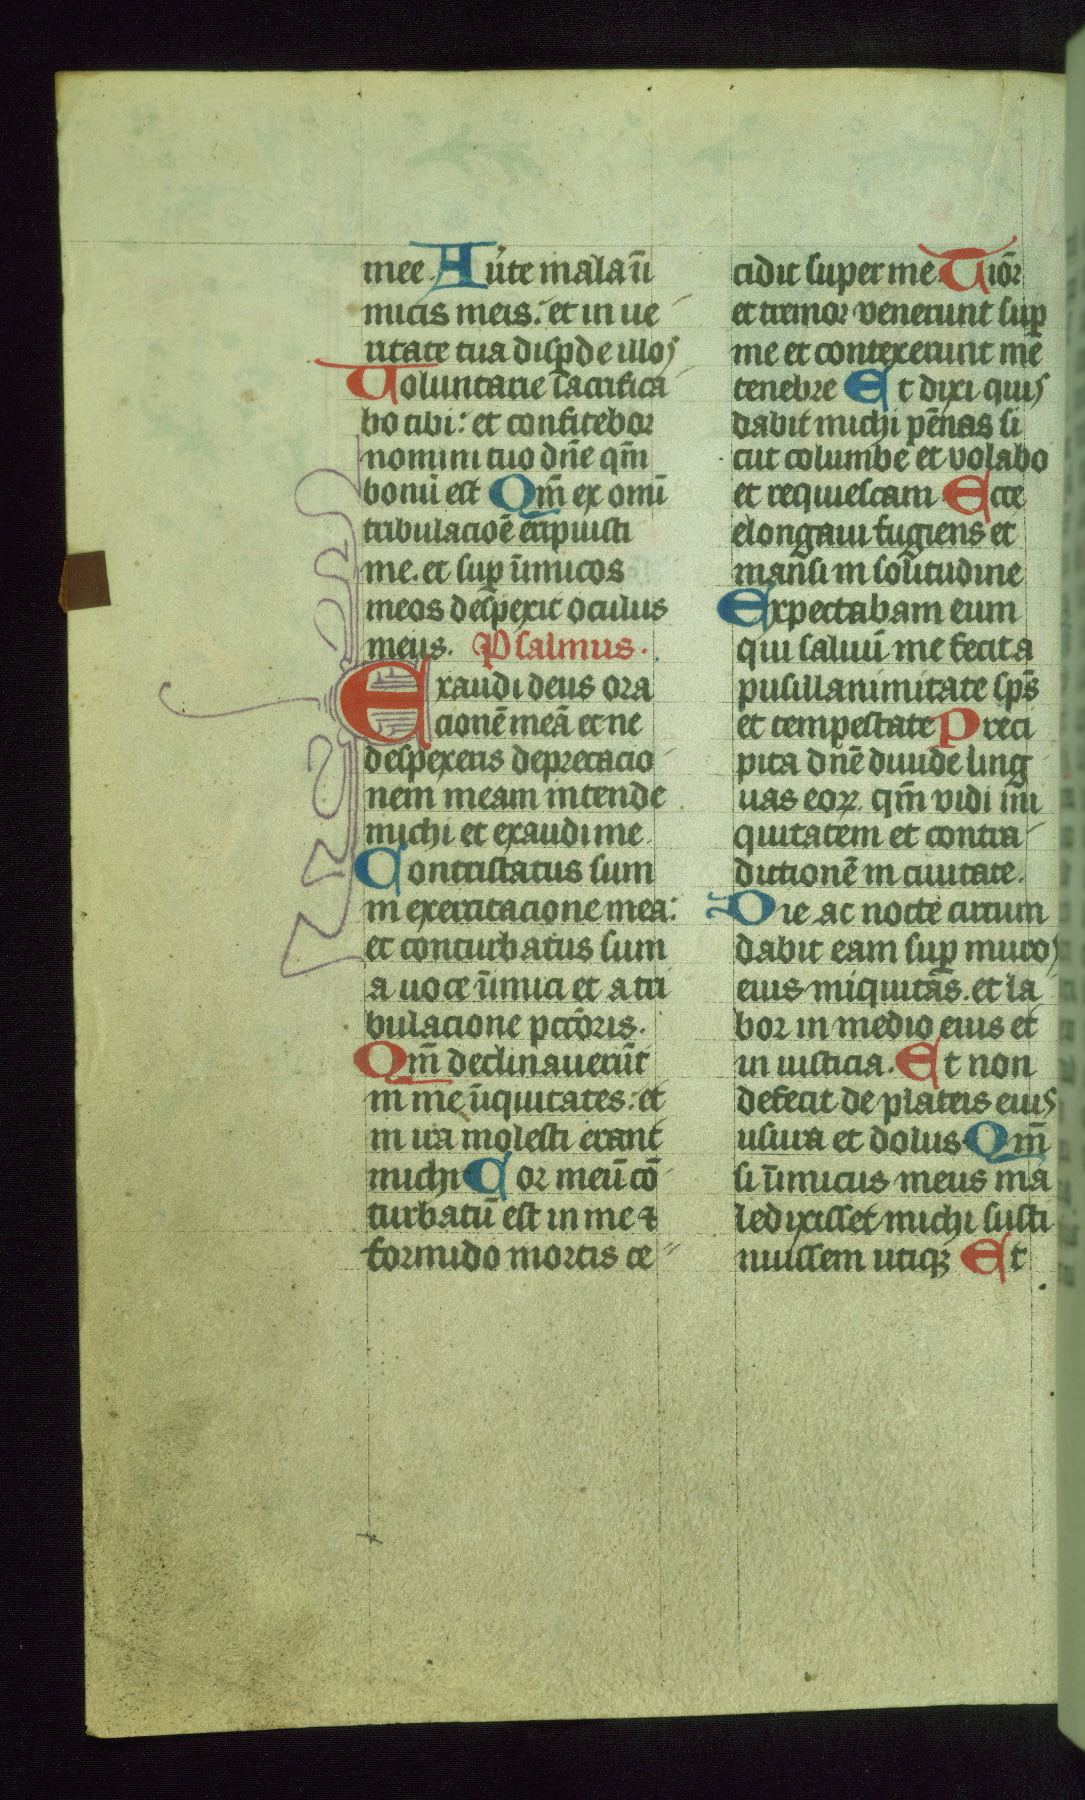 mee. Aũte mala ñi
micis meis: et in ue
ritate tua disꝑde illos
Voluntarie sacrifica
bo tibi: et confitebor
nomini tuo dñe qm̃
bonũ est Qm̃ ex omĩ
tribulacioẽ eripuisti
me. et suꝑ ĩimicos
meos despexit oculus
meus. Psalmus.
Exaudi deus ora
cionẽ meã et ne
despexeris deprecacio
nem meam intende
michi et exaudi me
Contristatus sum
in exercitacione mea:
et conturbatus sum
a uoce ĩimici et a tri
bulacione pctõris.
Qm̃ declinauerũt
in me ĩiquitates: et
in ira molesti erant
michi Cor meũ cõ
turbatũ est in me ⁊
formido mortis ce
cidit super me. Tiõr
et tremor venerunt suꝑ
me et contexerunt me
tenebre Et dixi quis
dabit michi pẽnas si
cut columbe et volabo
et requiescam Ecce
elongaui fugiens et
mansi in solitudine
Expectabam eum
qui saluũ me fecit a
pusillanimitate sp̃s
et tempestate Preci
pita dñe diuide ling
uas eoꝝ qm̃ vidi ini
quitatem et contra
dictionẽ in ciuitate.
Die ac nocte circum
dabit eam suꝑ muros
eius iniquitãs. et la
bor in medio eius et
in iusticia. Et non
defecit de plateis eius
usura et dolus Qm̃
si ĩimicus meus ma
ledixisset michi susti
nuissem utiqꝫ Et